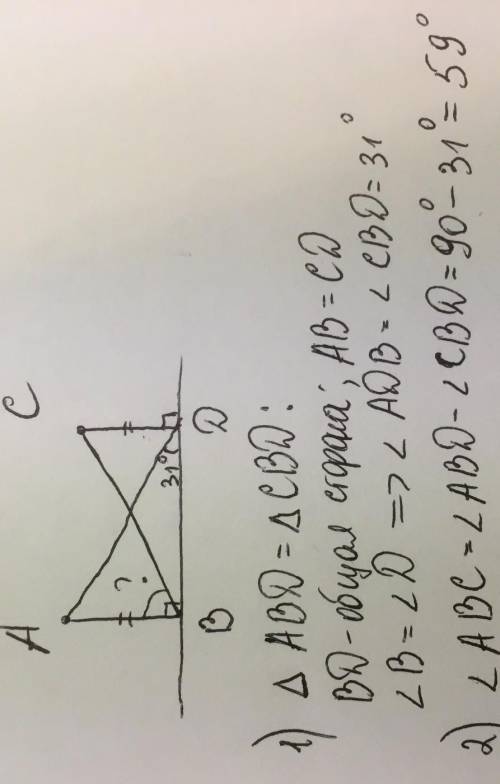 A C
?
31°
B D
1) Δ ABD = Δ CBD:
BD - общая сторона; AB = CD
∠B = ∠D => ∠ ADB = ∠ CBD = 31°
2) ∠ ABC = ∠ ABD - ∠ CBD = 90° - 31° = 59°